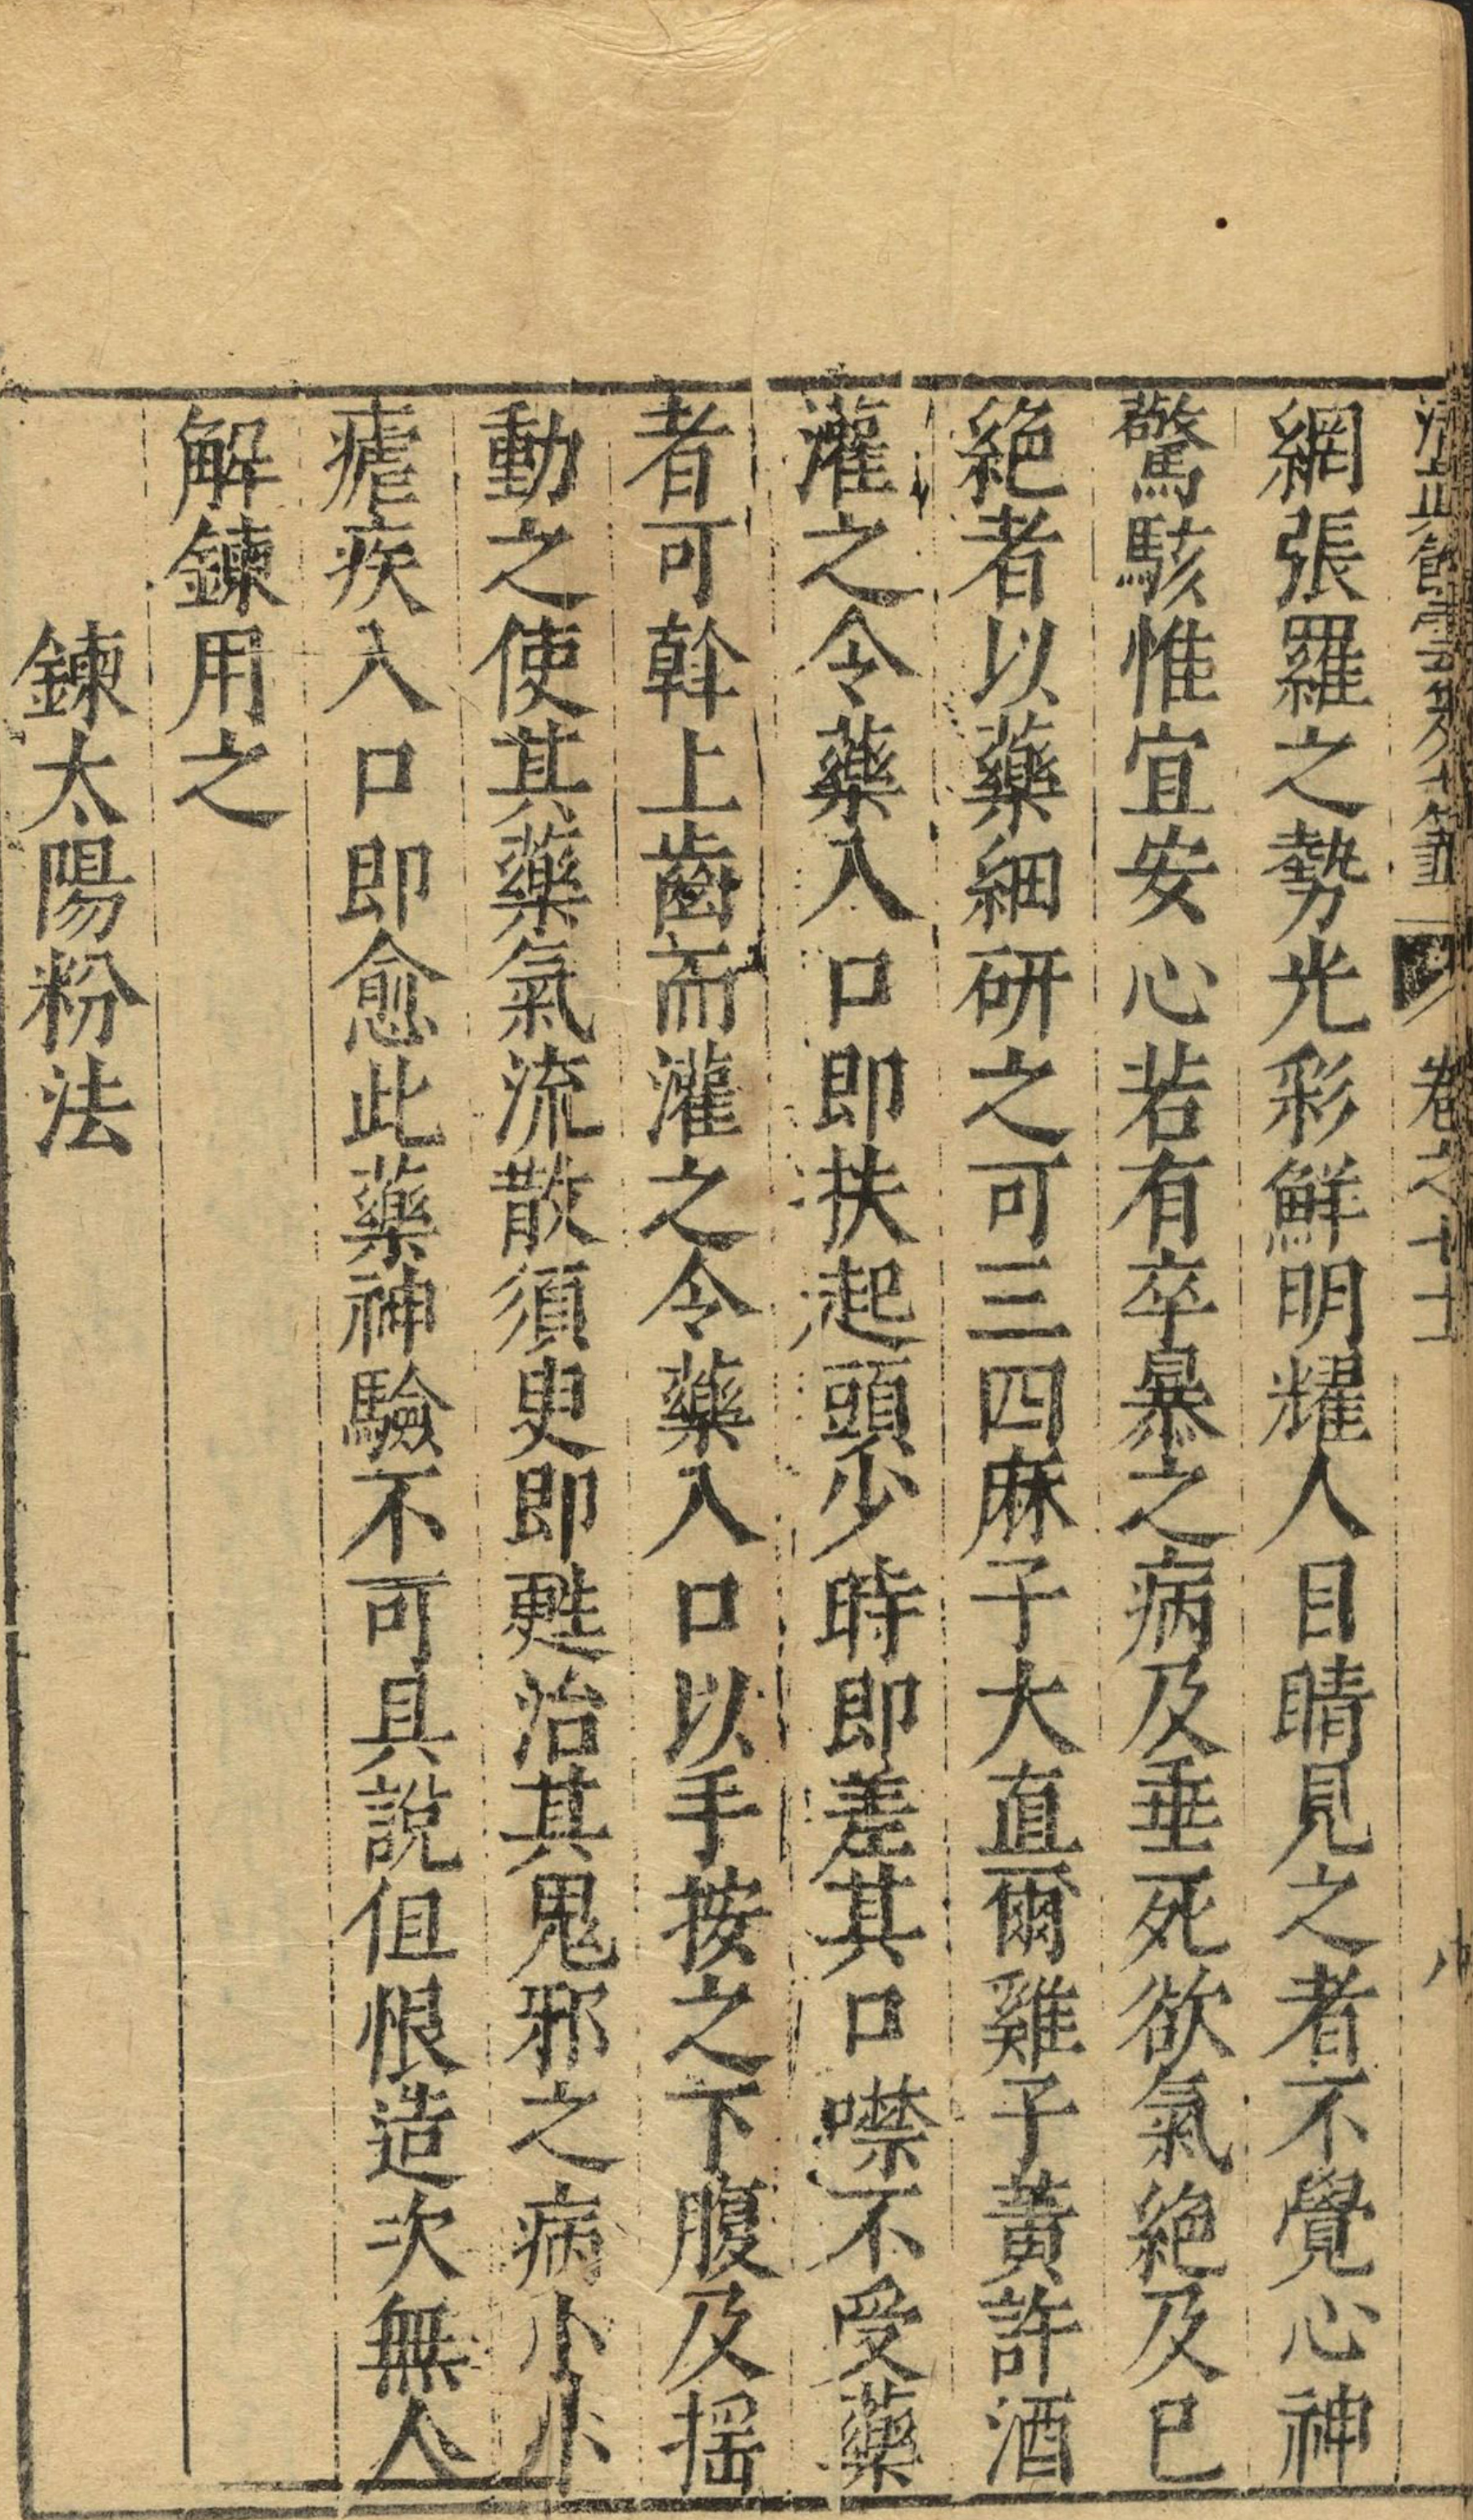 卷之十
網張羅之勢光彩鮮明耀人目睛見之者不覺心神
驚駭惟宜安心若有卒暴之病及垂死欲氣絕及已
絕者以藥細研之可三四麻子大直爾雞子黃許酒
灌之令藥入口即扶起頭少時即差其口噤不受藥
者可斡上齒而灌之令藥入口以手按之下腹及揺
動之使其藥氣流散須臾即甦治其鬼邪之病小小
瘧疾入口即愈此藥神驗不可具說但恨造次無人
解鍊用之
鍊太陽粉法